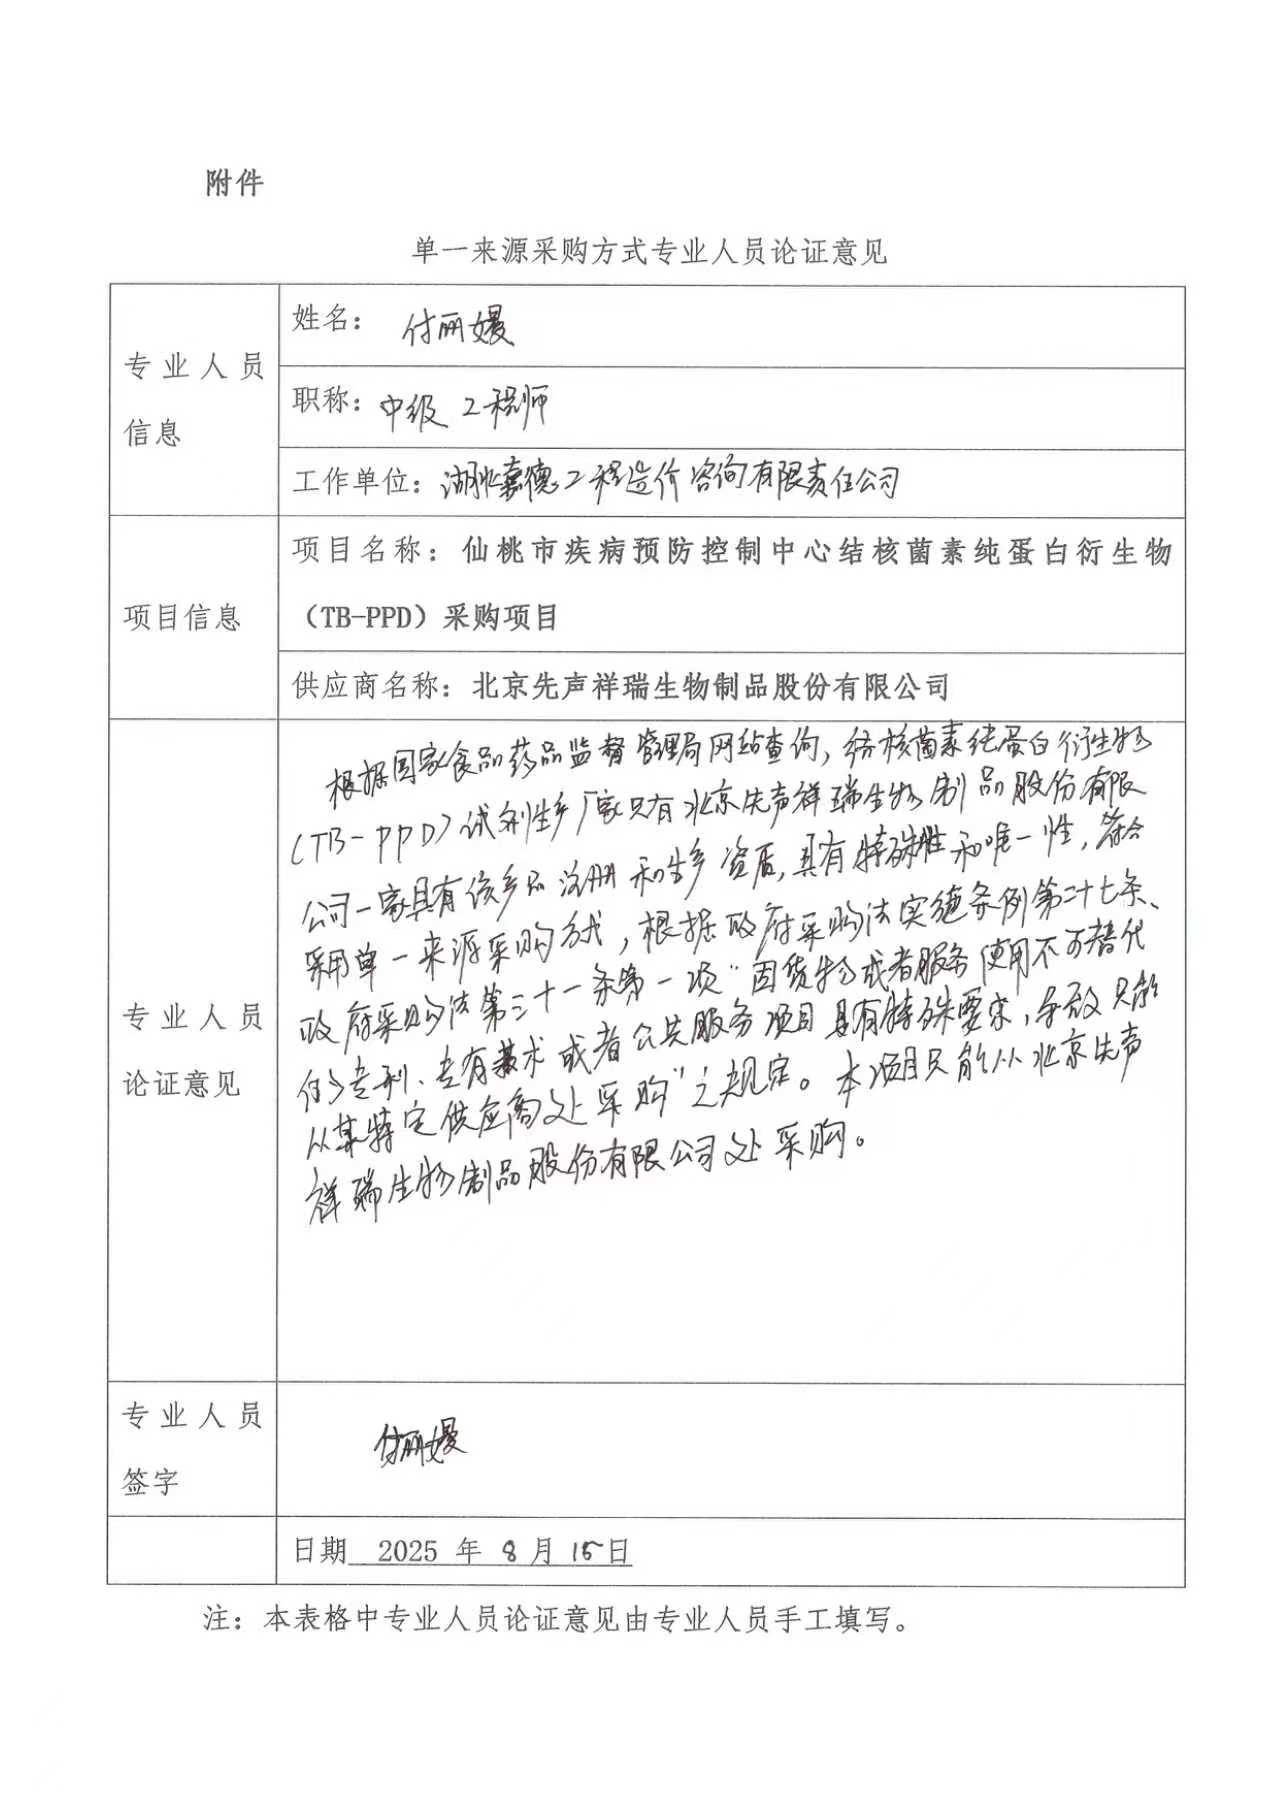 附件
单一来源采购方式专业人员论证意见
专业人员
信息
姓名： 付丽嫚
职称：中级工程师
工作单位：湖北嘉德工程造价咨询有限责任公司
项目信息
项目名称：仙桃市疾病预防控制中心结核菌素纯蛋白衍生物
（TB-PPD）采购项目
供应商名称：北京先声祥瑞生物制品股份有限公司
专业人员
论证意见
根据国家食品药品监督管理局网站查询，结核菌素纯蛋白衍生物
（TB-PPD）试剂生产厂家只有北京先声祥瑞生物制品股份有限
公司一家具有该产品注册和生产资质，具有特殊性和唯一性，符合
采用单一来源采购方式，根据政府采购法实施条例第二十七条、
政府采购法第三十一条第一项“因货物或者服务使用不可替代
的专利、专有技术或者公共服务项目具有特殊要求，导致只能
从某特定供应商处采购”之规定。本项目只能从北京先声
祥瑞生物制品股份有限公司处采购。
专业人员
签字
付丽嫚
日期 2025 年 8 月 15日
注：本表格中专业人员论证意见由专业人员手工填写。